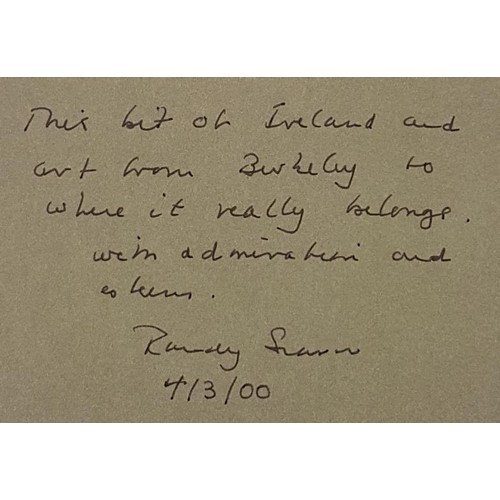 This bit of Ireland and
art from Berkeley to
where it really belongs.
with admiration and
esteem.
Randy
4/3/00